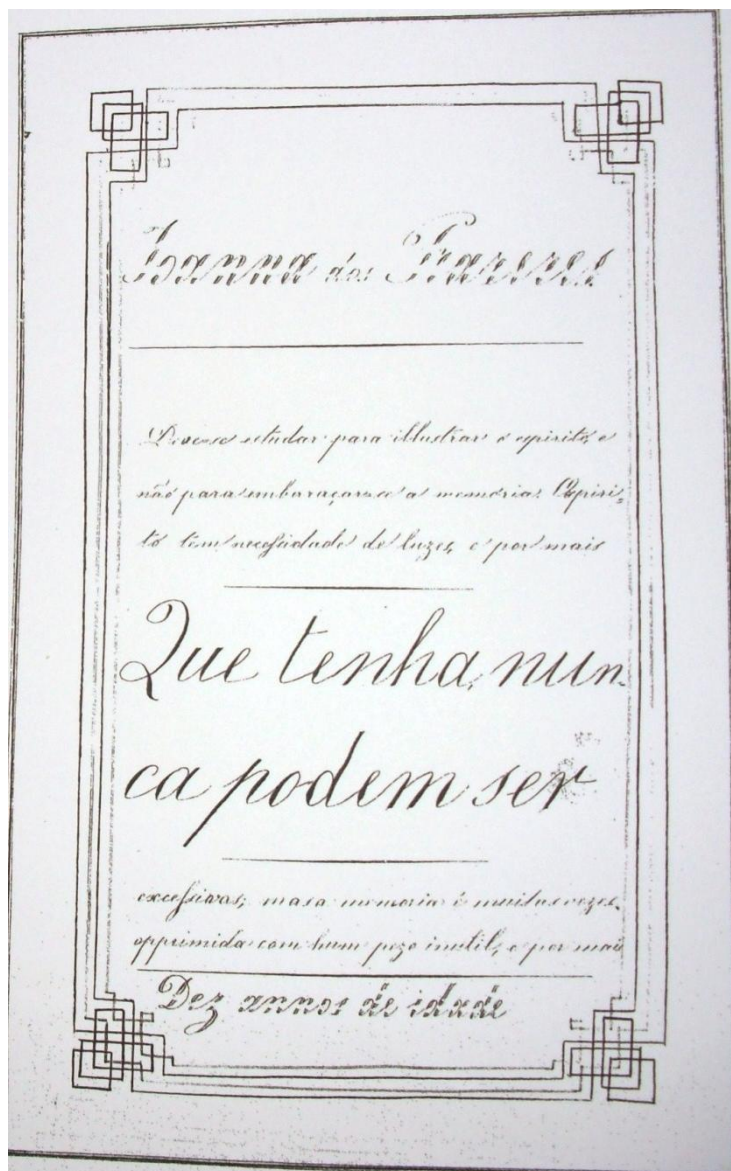 Joanna dos Prazeres
Deve-se estudar para illustrar o espirito, e
não para embaraçar-se a memoria. O espiri-
to tem necessidade de luzes, e por mais
Que tenha, nun-
ca podem ser
excessivas; mas a memoria é muitas vezes
opprimida com hum pezo inutil, e por mais
Dez annos de idade